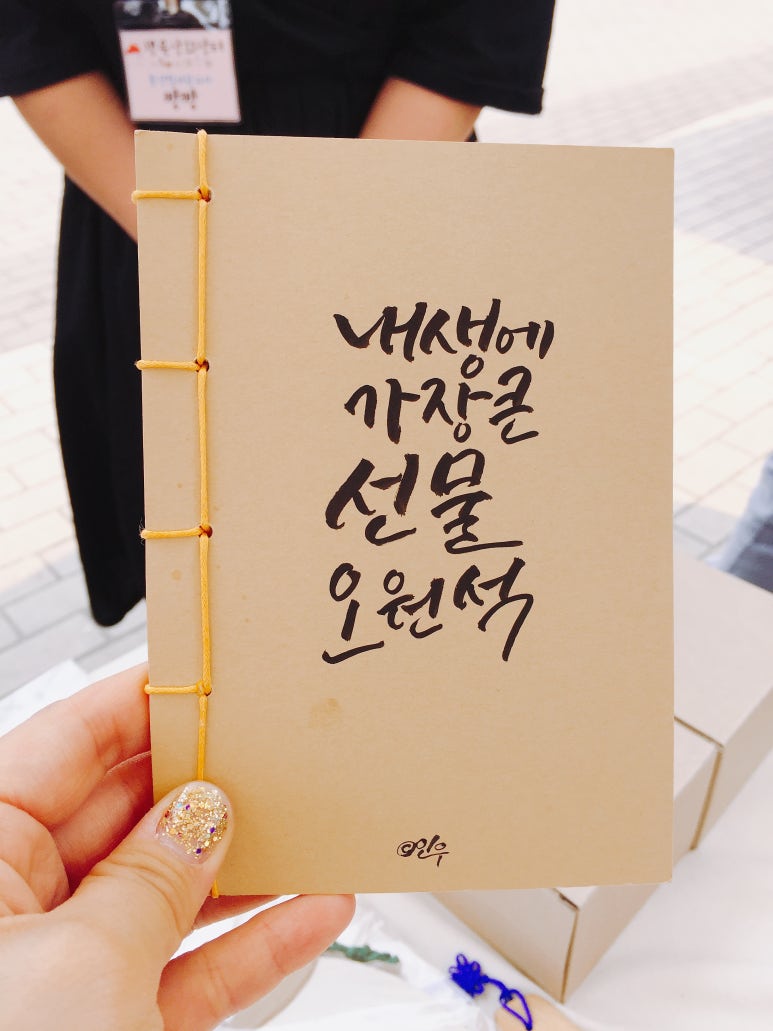 방방
내생에
가장큰
선물
오원석
@인우